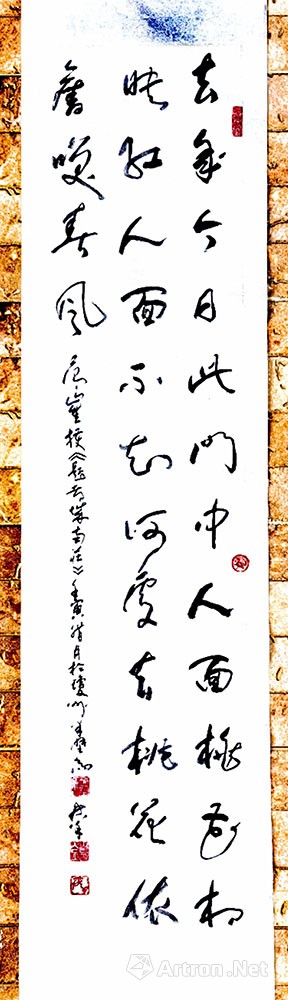 去年今日此門中人面桃花相
映红人面不知何處去桃花依
舊笑春风
唐崔護《題都城南庄》壬寅月於瓊州
Artron.Net